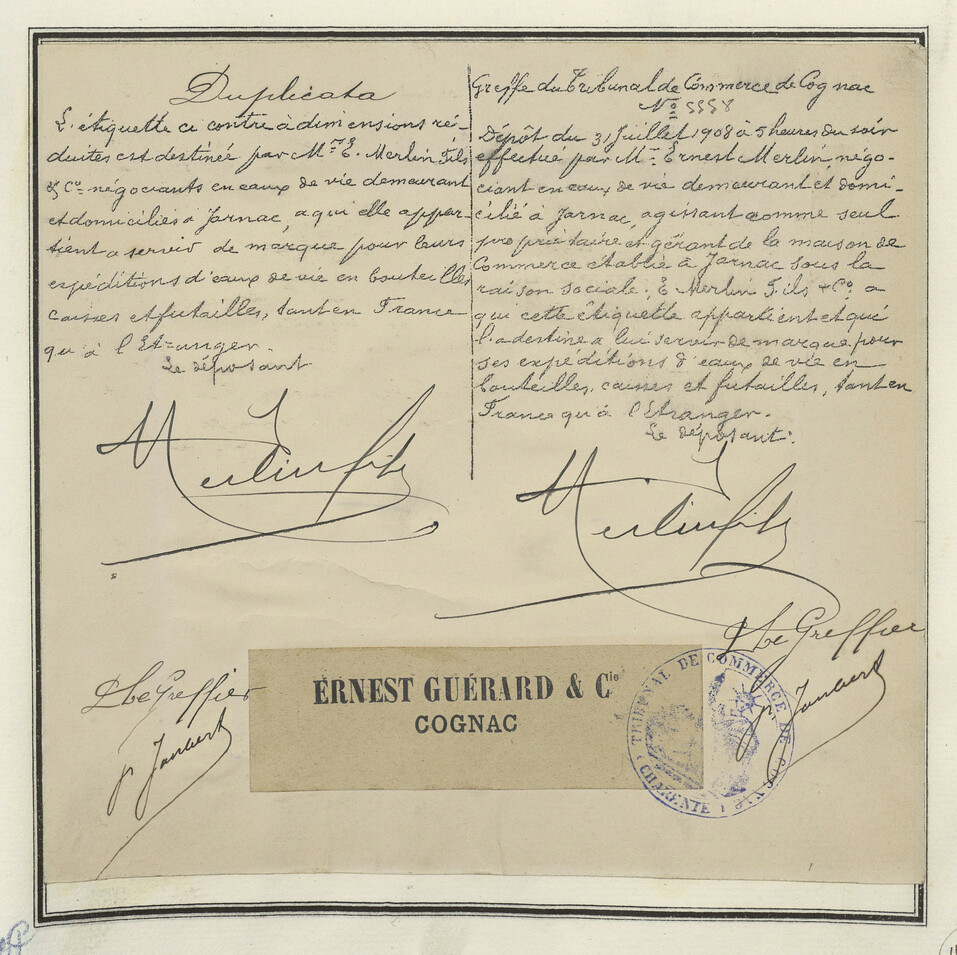 Duplicata
L'étiquette ci contre à dimensions ré-
duites est destinée par Mr E. Merlin Fils
& Co négociants en eaux de vie demeurant
et domiciliés à Jarnac, a qui elle appar-
tient a servir de marque pour leurs
expéditions d'eaux de vie en bouteilles
caisses et futailles, tant en France
qu'à l'Etranger.
Le déposant
Merlin fils
Le Greffier
Greffe du Tribunal de Commerce de Cognac
No 5558
Dépôt du 31 Juillet 1908 à 5 heures du soir
effectué par Mr Ernest Merlin négo-
ciant en eaux de vie demeurant et domi-
cilié à Jarnac, agissant comme seul
propriétaire et gérant de la maison de
Commerce établie à Jarnac sous la
raison sociale: E Merlin Fils & Co, a
qui cette étiquette appartient et qui
l'a destine a lui servir de marque pour
ses expéditions d'eaux de vie en
bouteilles, caisses et futailles, tant en
France qu'à l'Etranger.
Le déposant:
Merlin fils
Le Greffier
ERNEST GUÉRARD & Cie
COGNAC
TRIBUNAL DE COMMERCE DE COGNAC
CHARENTE